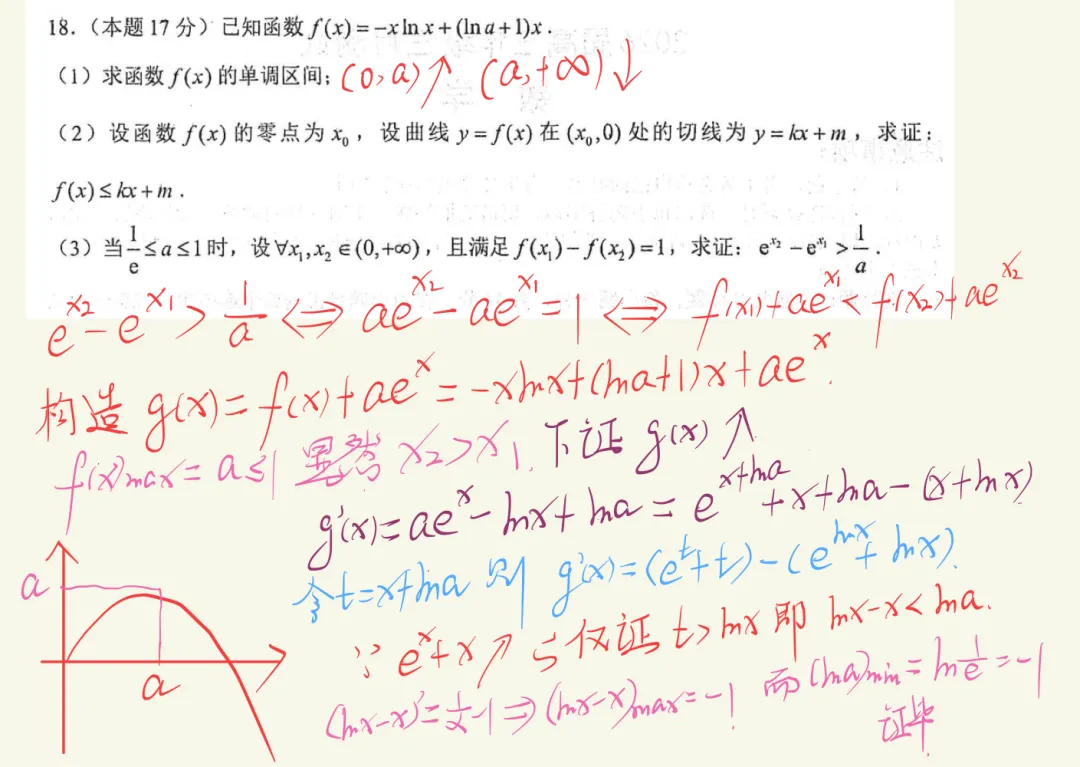 18.(本题17分)已知函数 f(x)=-x ln x+(ln a+1)x.
(1)求函数 f(x) 的单调区间; (0,a)↗ (a,+∞)↓
(2)设函数 f(x) 的零点为 x₀,设曲线 y=f(x) 在 (x₀,0) 处的切线为 y=kx+m,求证:
f(x)≤kx+m.
(3)当 1/e≤a≤1 时,设 ∀x₁,x₂∈(0,+∞),且满足 f(x₁)-f(x₂)=1,求证: e^{x₂}-e^{x₁}>1/a.
e^{x₂}-e^{x₁}>1/a ⟺ ae^{x₂}-ae^{x₁}=1 ⟺ f(x₁)+ae^{x₁}<f(x₂)+ae^{x₂}
构造 g(x)=f(x)+ae^x=-xlnx+(lna+1)x+ae^x.
f(x)max=a≤1 显然 x₂>x₁. 下证 g(x)↗
g'(x)=ae^x-lnx+lna=e^{x+lna}+x+lna-(x+lnx)
令t=x+lna 则 g'(x)=(e^t+t)-(e^{lnx}+lnx).
∵ e^x+x↗ ∴仅证 t>lnx 即 lnx-x<lna.
(lnx-x)'=1/x-1⇒(lnx-x)max=-1 而(lna)min=ln1/e=-1
证毕
a
a